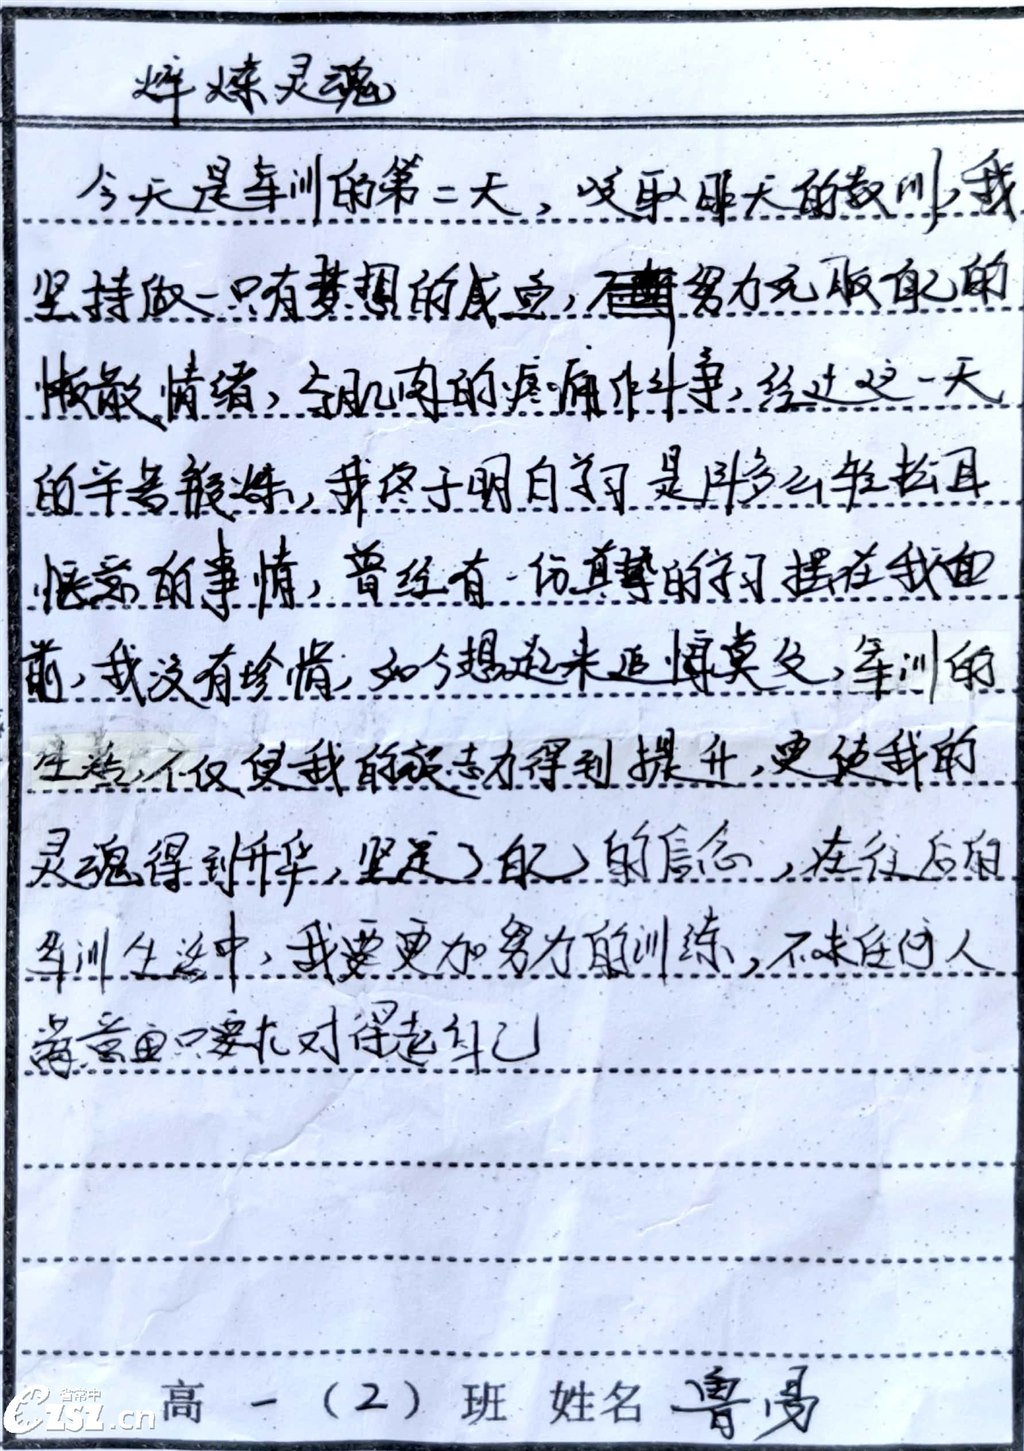 焠炼灵魂
今天是军训的第二天，吸取昨天的教训，我
坚持做一只有梦想的咸鱼，努力克服自己的
懒散情绪，与肌肉的疼痛作斗争，经过这一天
的辛苦锻炼，我终于明白学习是件多么轻松且
惬意的事情，曾经有一份真挚的学习摆在我面
前，我没有珍惜，如今想起来追悔莫及，军训的
生活，不仅使我的毅志力得到提升，更使我的
灵魂得到升华，坚定了自己的信念，在往后的
军训生活中，我要更加努力的训练，不求任何人
满意但只要求对得起自己
高一（2）班 姓名 鲁
省常中
CZSZ.cn